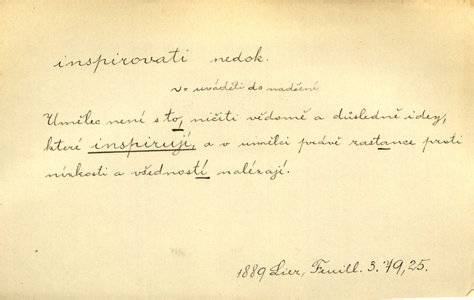 inspirovati nedok.
v= uváděti do nadšení
Umělec není s to, ničiti vědomě a důsledně idey,
které inspirují, a v umělci právě zastance proti
nízkosti a všedností nalézají.
1889 Lier, Feuill. 3. 79, 25.